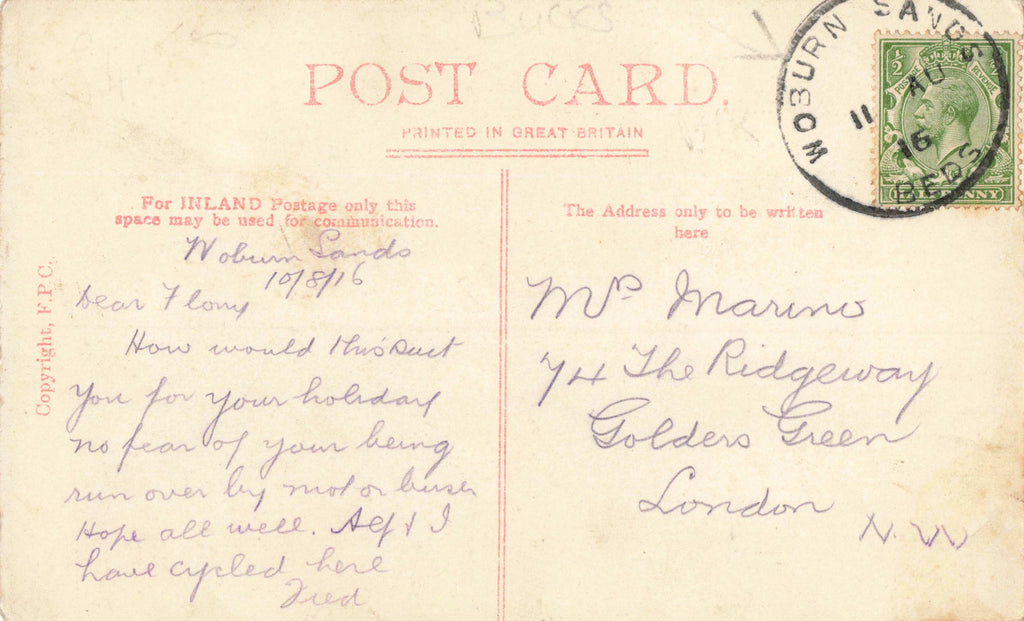 BUCKS
POST CARD.
PRINTED IN GREAT BRITAIN
WOBURN SANDS
11 AU
16
BEDS
POSTAGE REVENUE
1/2
HALFPENNY
For INLAND Postage only this
space may be used for communication.
The Address only to be written
here
Copyright, F.P.C.
Woburn Sands
10/8/16
Dear Flony
How would this suit
you for your holiday
no fear of your being
run over by motor buses
Hope all well. Alf & I
have cycled here
Fred
Mrs Marino
74 The Ridgeway
Golders Green
London
N.W